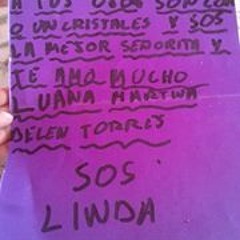 A TUS OJOS SON CO
O UN CRISTALES Y SOS
LA MEJOR SEÑORITA Y
TE AMO MUCHO
LUANA MARTINA
BELEN TORRES
SOS
LINDA